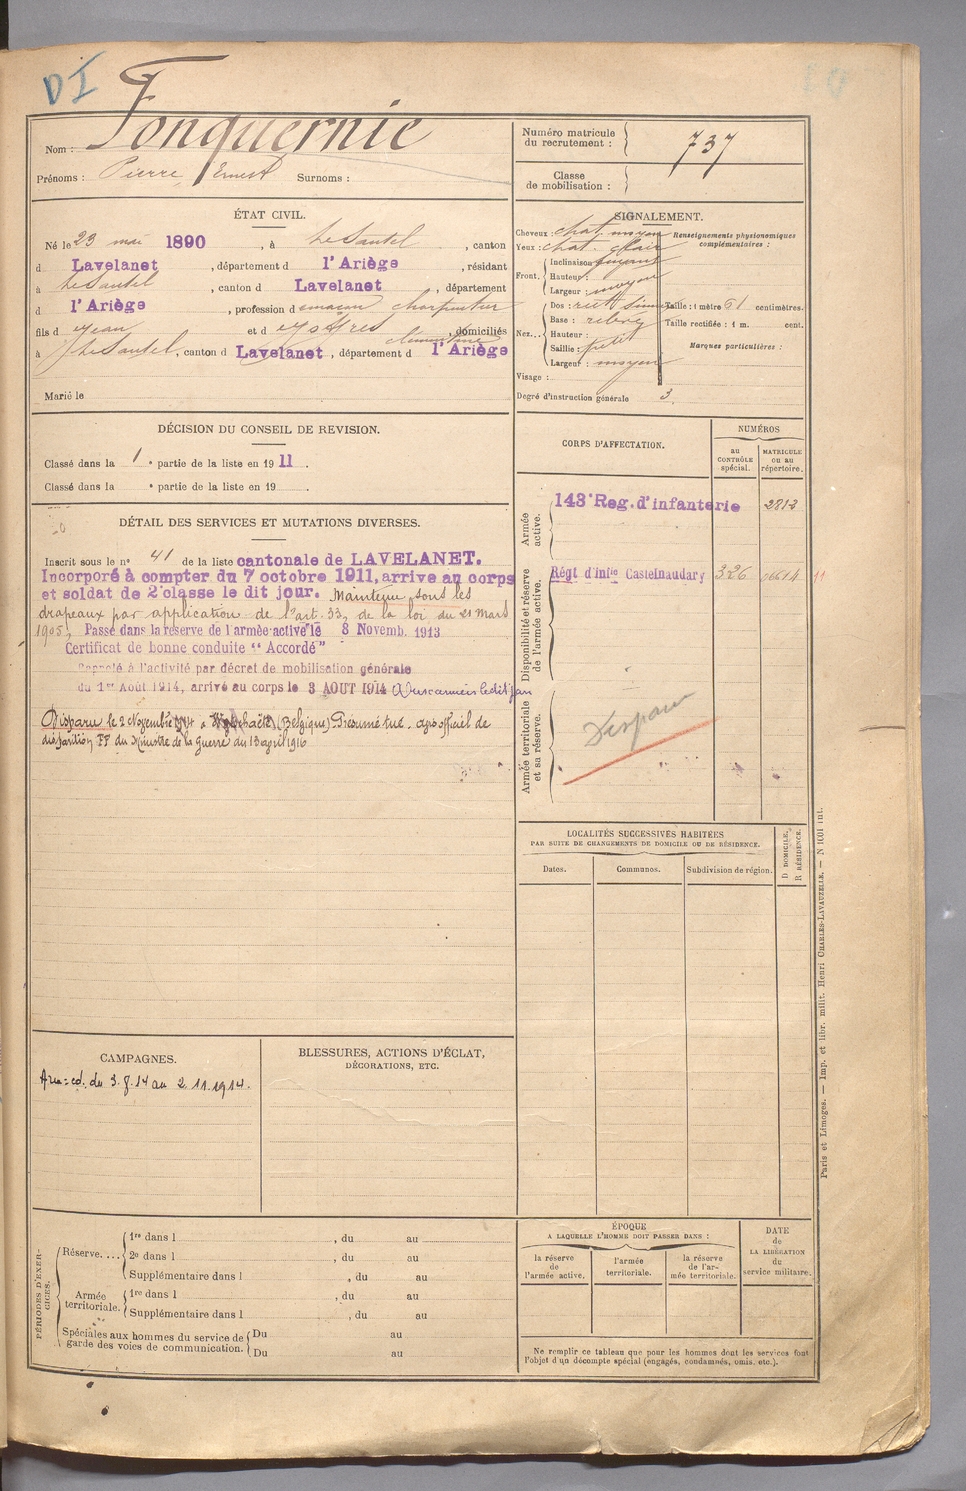 DI
Nom : Fonquernie
Prénoms : Pierre, Ernest Surnoms :
Numéro matricule du recrutement : 737
Classe de mobilisation :
ÉTAT CIVIL.
Né le 23 mai 1890, à Le Sautel, canton
d Lavelanet, département d l'Ariège, résidant
à Le Sautel, canton d Lavelanet, département
d l'Ariège, profession d maçon charpentier
fils d Jean et d , domiciliés
à Le Sautel, canton d Lavelanet, département d l'Ariège
Marié le
SIGNALEMENT.
Cheveux : chat. moyen
Renseignements physionomiques complémentaires :
Yeux : chat. clair
Front. Inclinaison fuyant
Hauteur :
Largeur : moyen
Nez... Dos : rect. sinueux
Base : relevée
Hauteur :
Saillie : petit
Largeur : moyen
Taille : 1 mètre 61 centimètres.
Taille rectifiée : 1 m. cent.
Marques particulières :
Visage :
Degré d'instruction générale 3.
DÉCISION DU CONSEIL DE REVISION.
Classé dans la 1e partie de la liste en 1911.
Classé dans la e partie de la liste en 19 .
DÉTAIL DES SERVICES ET MUTATIONS DIVERSES.
Inscrit sous le n° 41 de la liste cantonale de LAVELANET.
Incorporé à compter du 7 octobre 1911, arrive au corps
et soldat de 2e classe le dit jour. Maintenu sous les
drapeaux par application de l'art. 33 de la loi du 21 Mars
1905, Passé dans la réserve de l'armée active le 8 Novemb. 1913
Certificat de bonne conduite "Accordé"
Rappelé à l'activité par décret de mobilisation générale
du 1er Août 1914, arrivé au corps le 3 AOUT 1914 Aux armées le dit jour
Disparu le 2 Novembre 1914 à (Belgique) Présumé tué. avis officiel de
disparition FF du Ministre de la guerre du 13 avril 1916
CORPS D'AFFECTATION.
NUMÉROS
au CONTRÔLE spécial.
MATRICULE ou au répertoire.
Armée active.
143e Reg. d'infanterie 2813
Disponibilité et réserve de l'armée active.
Régt d'Inftie Castelnaudary 326 06614 11
Armée territoriale et sa réserve.
Disparu
LOCALITÉS SUCCESSIVES HABITÉES
PAR SUITE DE CHANGEMENTS DE DOMICILE OU DE RÉSIDENCE.
Dates.
Communes.
Subdivision de région.
D DOMICILE.
R RÉSIDENCE.
CAMPAGNES.
du 3.8.14 au 2.11.1914.
BLESSURES, ACTIONS D'ÉCLAT,
DÉCORATIONS, ETC.
PÉRIODES D'EXERCICES.
Réserve....
1re dans l , du au
2e dans l , du au
Supplémentaire dans l , du au
Armée territoriale.
1re dans l , du au
Supplémentaire dans l , du au
Spéciales aux hommes du service de garde des voies de communication.
Du au
Du au
ÉPOQUE
A LAQUELLE L'HOMME DOIT PASSER DANS :
la réserve de l'armée active.
l'armée territoriale.
la réserve de l'armée territoriale.
DATE de LA LIBÉRATION du service militaire.
Ne remplir ce tableau que pour les hommes dont les services font
l'objet d'un décompte spécial (engagés, condamnés, omis, etc.).
Paris et Limoges. — Imp. et libr. milit. Henri CHARLES-LAVAUZELLE. — N 1001 int.